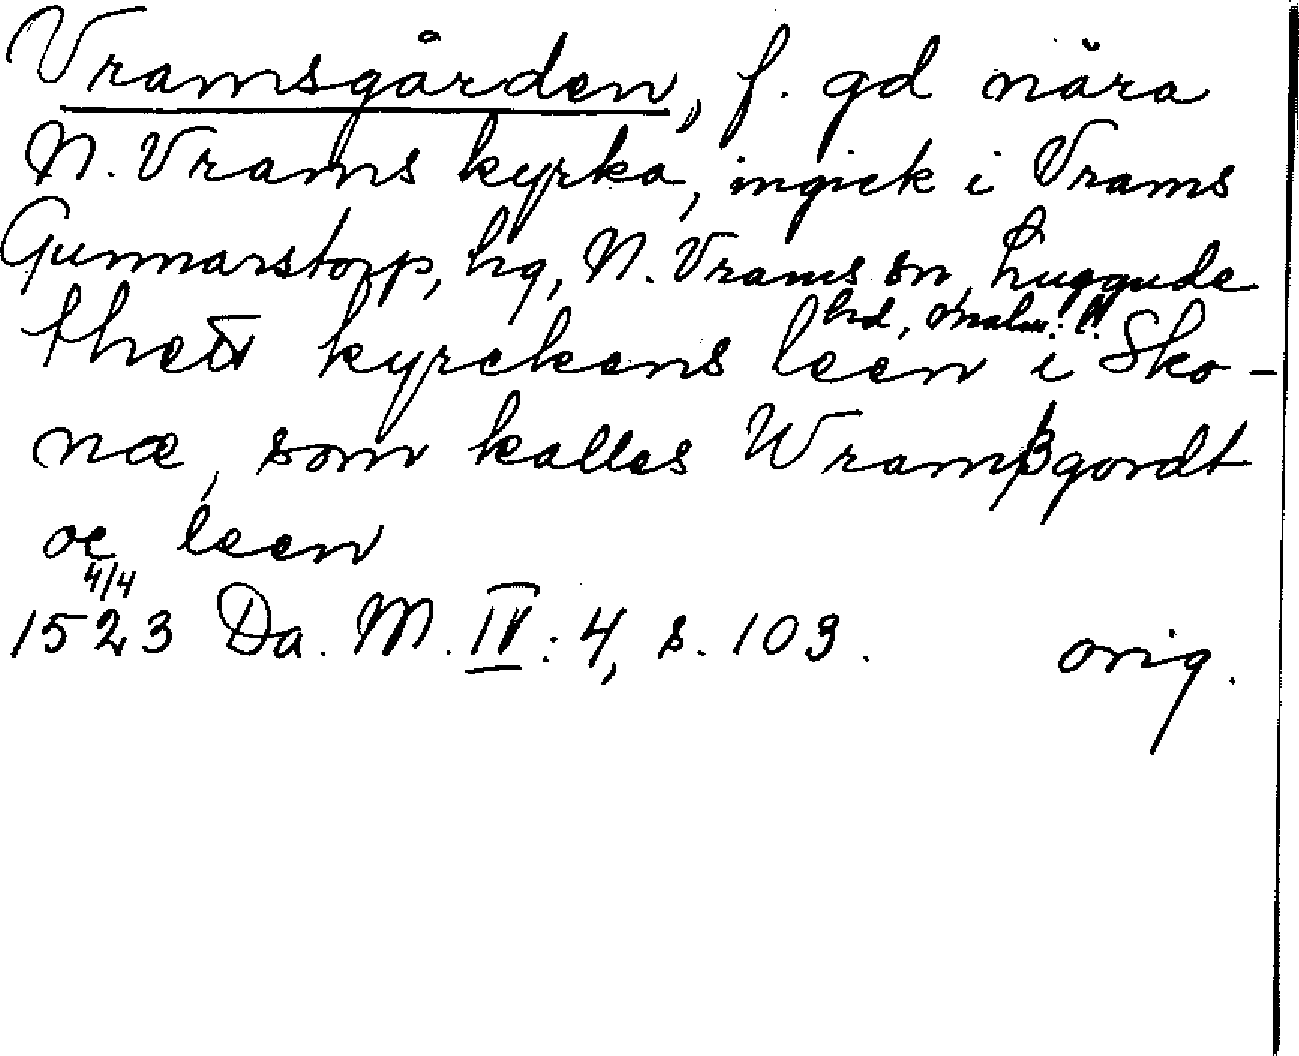 Vramsgården, f. gd nära
N. Vrams kyrka, ingick i Vrams
Gunnarstorp, hg, N. Vrams sn, Luggude
hd, Malm. l.
thett kyrckens leen i Sko-
næ, som kalles Wramβgordt
oc leen
4/4
1523 Da. M. IV: 4, s. 103. orig.